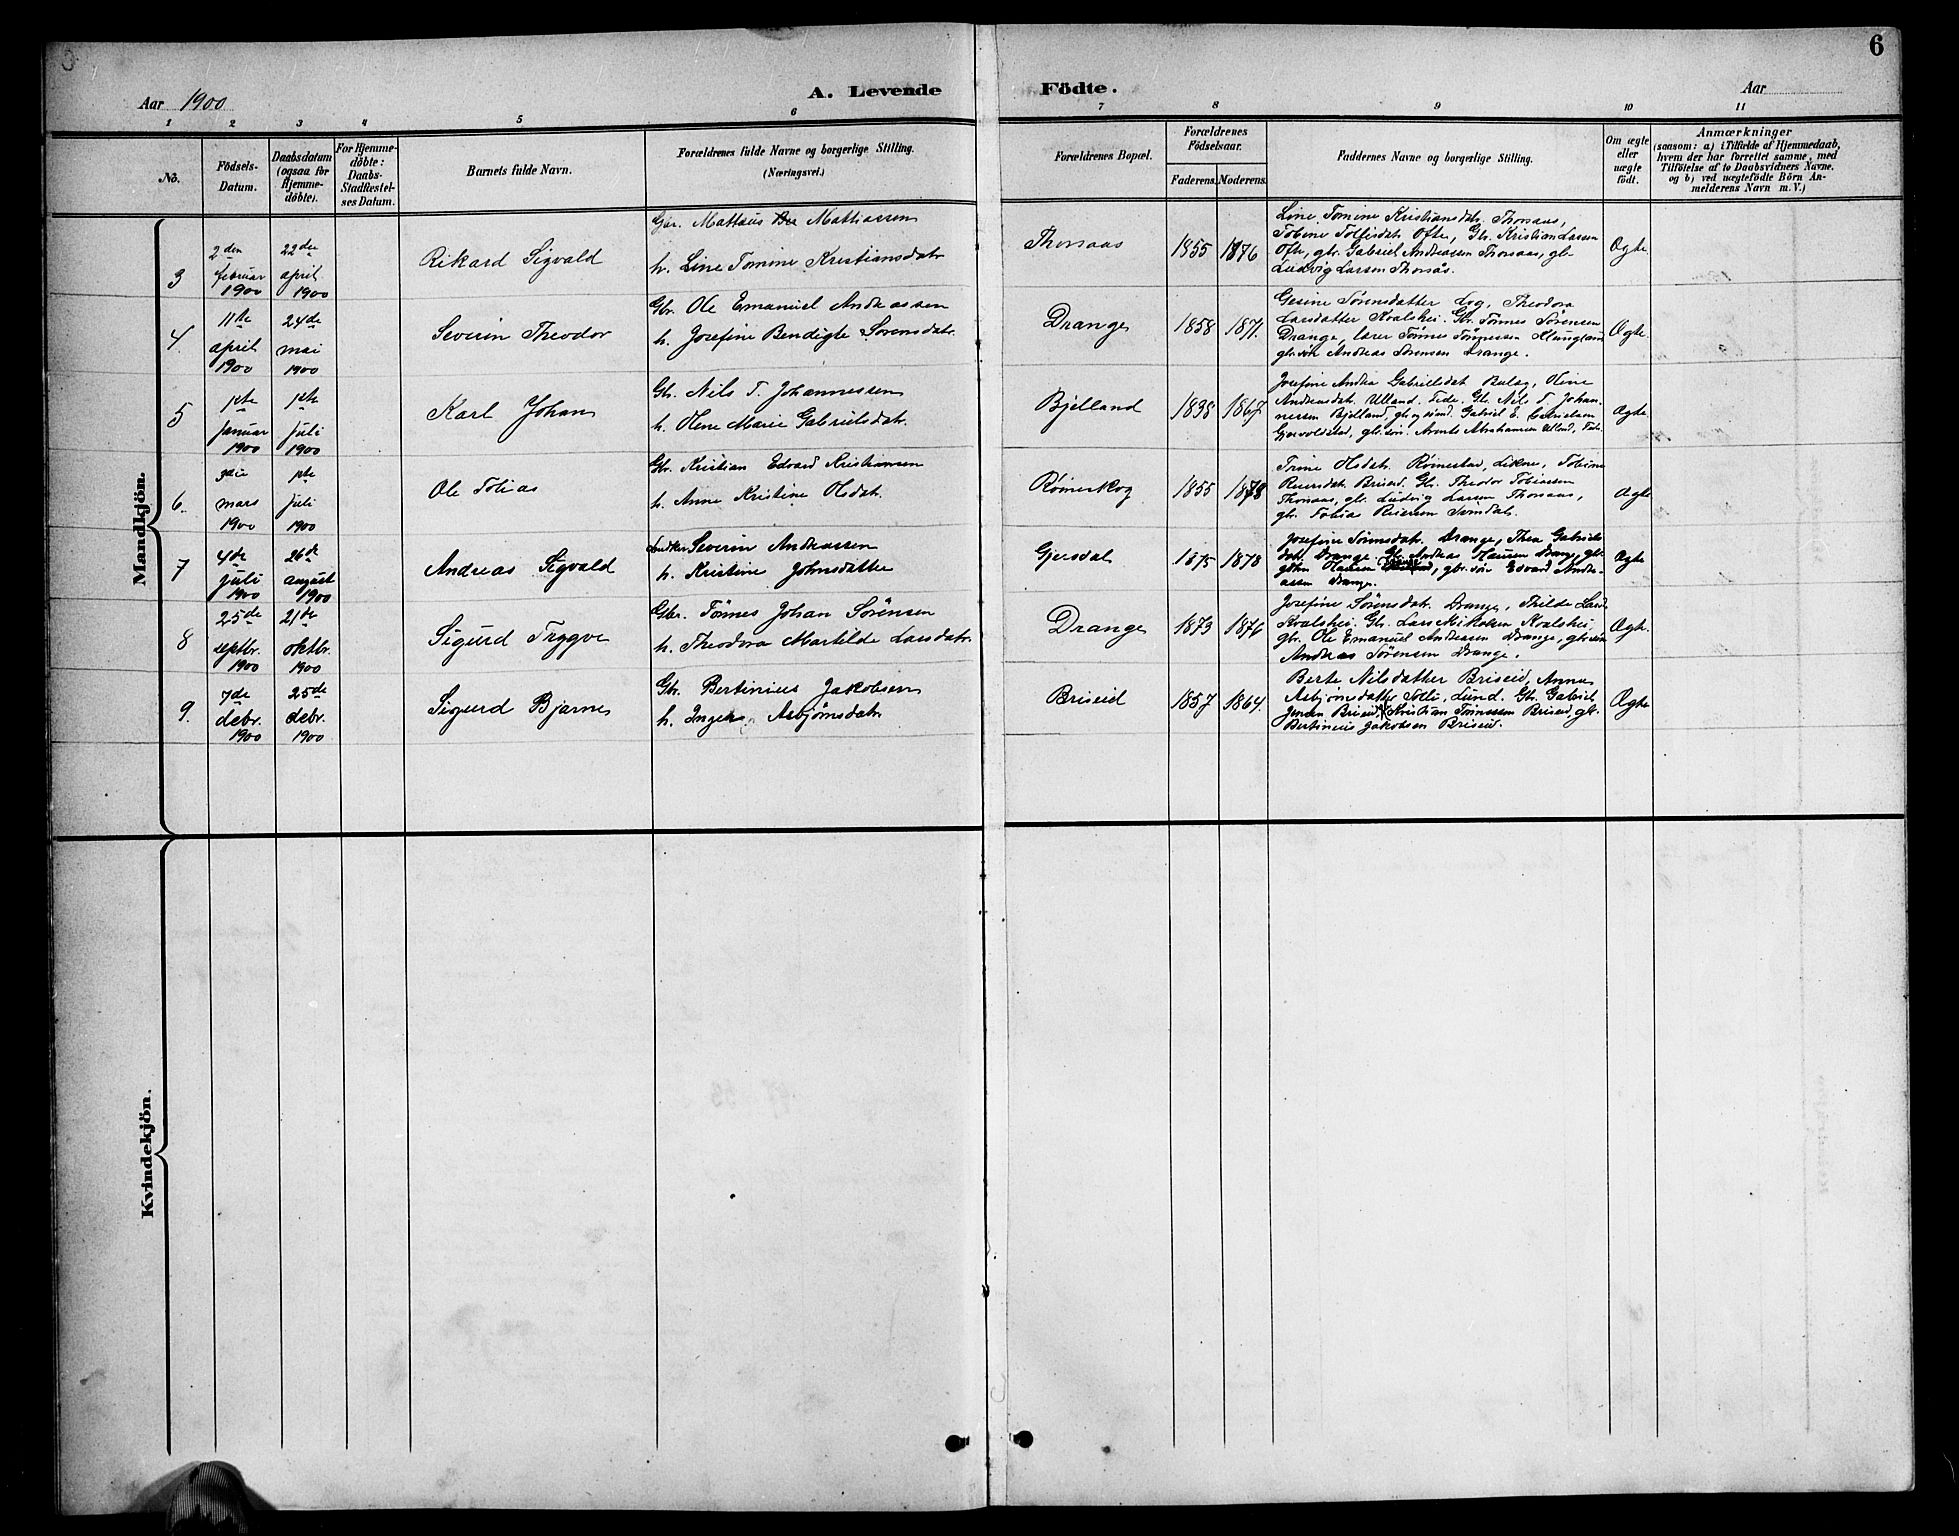 6
Aar 1900
A. Levende Födte.
Aar
1 2 3 4 5 6 7 8 9 10 11
No.
Födsels-
Datum.
Daabsdatum
(ogsaa for
Hjemme-
döbte).
For Hjemme-
döbte:
Daabs-
Stadfæstel-
ses Datum.
Barnets fulde Navn.
Forældrenes fulde Navne og borgerlige Stilling.
(Næringsvei.)
Forældrenes Bopæl.
Forældrenes
Födselsaar.
Faderens. Moderens.
Faddernes Navne og borgerlige Stilling.
Om ægte
eller
uægte
födt.
Anmærkninger
(saasom: a) i Tilfælde af Hjemmedaab,
hvem der har forrettet samme, med
Tilföielse af to Daabsvidners Navne.
og b) ved uægtefödte Börn An-
melderens Navn m. V.)
Mandkjön.
3
2den
februar
1900
22de
april
1900
Rikard Sigvald
Gbr. Mattæus Mattiassen
h. Line Tomine Kristiansdatr.
Thorsaas
1855 1876
Line Tomine Kristiansdatr. Thorsaas,
Tobine Tolfsdatr. Ofte, Gbr. Kristian Larsen
Ofte, gbr. Gabriel Andreassen Thorsaas, gbr.
Ludvig Larsen Thorsås.
Ægte
4.
11te
april
1900
24de
mai
1900
Severin Theodor
Gbr. Ole Emanuel Andreassen
h. Josefine Bendigte Sørensdatr.
Drange
1858 1871.
Gesine Sørensdatter Log, Theodora
Larsdatter Kvalshei. Gbr. Tønnes Sørensen
Drange, lærer Tønnes Tønnessen Klungland
gbr. søn Andreas Sørensen Drange.
Ægte.
5
1ste
januar
1900
1ste
juli
1900
Karl Johan
Gbr. Nils T. Johannessen
h. Olene Marie Gabrielsdatr.
Bjelland
1838 1867
Josefine Andrea Gabrielsdat. Oline
Andreasdatr. Ulland, Fede. Gbr. Nils T. Johan-
nessen Bjelland, Gabriel E.
gbr. søn. Arnt Abrahamsen Ulland, Fede.
Ægte.
6.
3die
mars
1900
1ste
juli
1900
Ole Tobias
Gbr. Kristian Edvard Kristiansen
h. Anne Kristine Olsdatr.
Rømeskog
1855 1878
Trine Olsdatr. Rømestad, Likne, Tobine
Reiersdat. Briseid. Gbr. Theodor Tobiassen
Thorsaas, gbr. Ludvig Larsen Thorsaas,
gbr. Tobias Reiersen Svindal.
Ægte
7
4de
juli
1900
26de
august
1900
Andreas Sigvald
Severin Andreassen
h. Kristine Johnsdatter
Gjersdal
1875 1878
Josefine Sørensdatr. Drange, Thea Gabriels-
datr. Drange. Gbr. Andreas Hansen Drange, gbr.
Hansen gbr. søn Edvard Andre-
assen Drange.
Ægte
8
25de
septbr.
1900
21de
oktbr.
1900
Sigurd Tryggve
Gbr. Tønnes Johan Sørensen
h. Theodora Martilde Larsdatr.
Drange
1873 1876
Josefine Sørensdatr. Drange, Thilde Larsd.
Kvalshei, Gbr. Lars Mikalsen Kvalshei,
gbr. Ole Emanuel Andreassen Drange, gbr. søn
Andreas Sørensen Drange.
Ægte.
9.
7de
debr.
1900
25de
debr.
1900
Sigurd Bjarne
Gbr. Bertinius Jakobsen
h. Inger Asbjørnsdatr.
Briseid
1857 1864.
Berte Nilsdatter Briseid, Anne
Asbjørnsdatter Tolli, Lund. Gbr. Gabriel
Jensen Briseid, Kristian Tønnessen Briseid, gbr.
Bertinius Jakobsen Briseid.
Ægte
Kvindekjön.